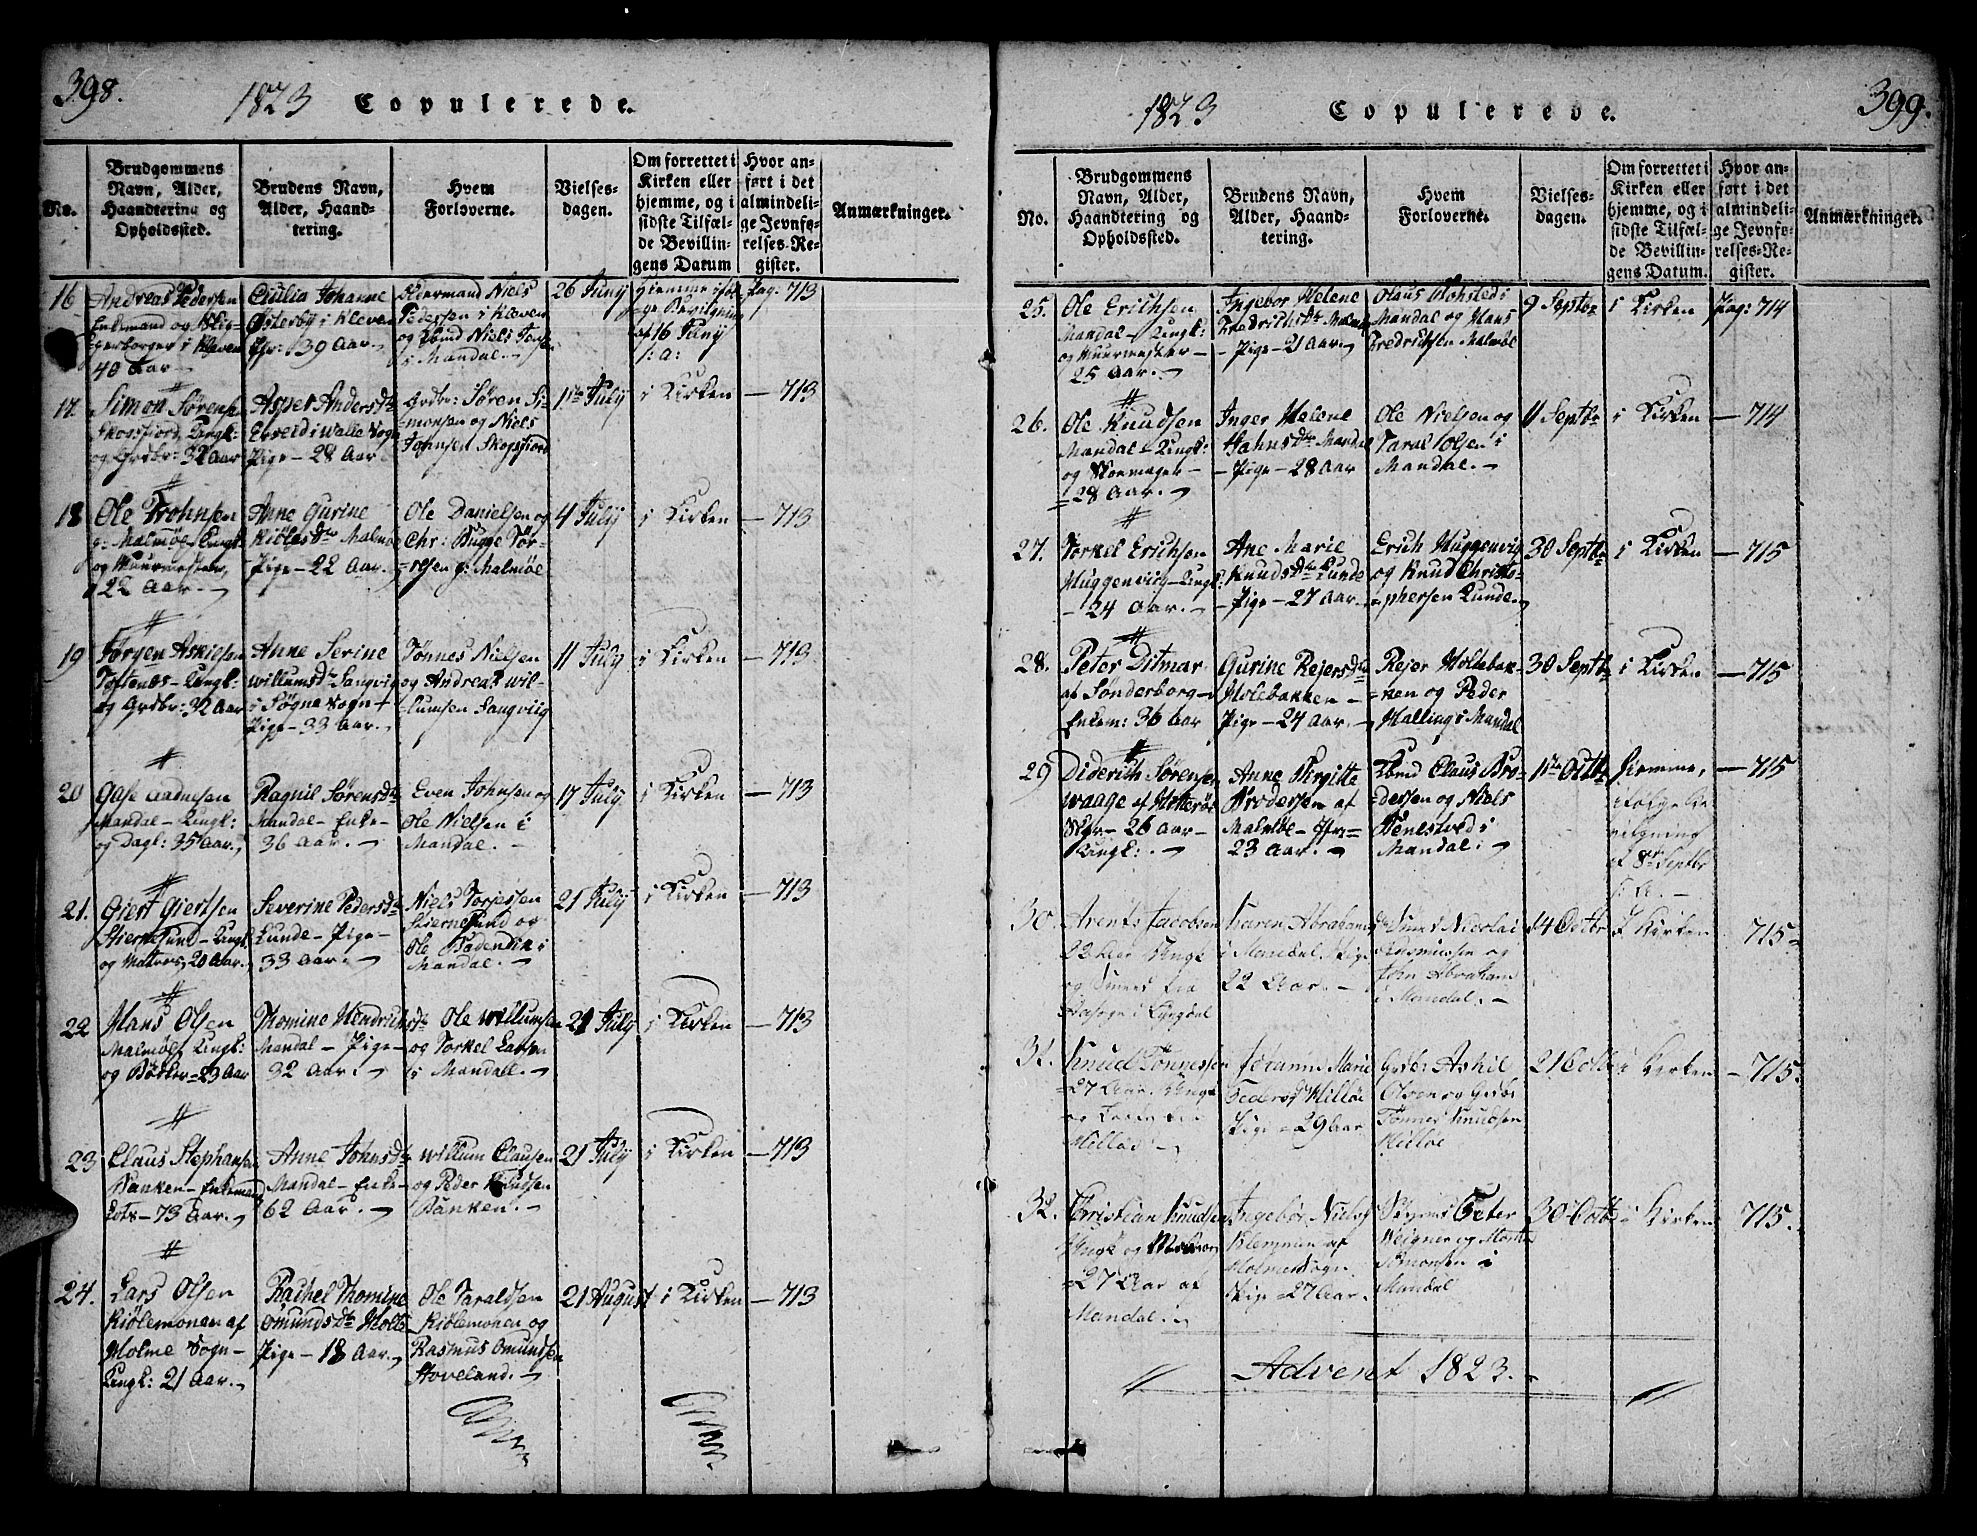 398.
1823 Copulerede.
No.
Brudgommens
Navn, Alder,
Haandtering og
Opholdssted.
Brudens Navn,
Alder, Haand-
tering.
Hvem
Forloverne.
Vielses-
dagen.
Om forrettet i
Kirken eller
hjemme, og i
sidste Tilfæl-
de Bevillin-
gens Datum
Hvor an-
ført i det
almindeli-
ge Jevnfø-
relses-Re-
gister.
Anmærkninger.
16
Andreas Pedersen
Enkemand og
Borger i Kleven
40 Aar
Cicilia Johanne
Østerbÿ i Kleven
39 Aar
Oldermand Niels
Pedersen i Kleven
og Niels
i Mandal.
26 Junÿ
Hjemme iføl-
ge Bevilgning
af 16 Junÿ
:a:
Pag. 713
17.
Simon Sørens
Skogsfiord, Ungk:
og Grdbr: 32 Aar
Asper Andersdtr
i Walle Sogn
Pige - 28 Aar
Grdbr: Søren Si-
monsen og Niels
Johnsen Skogsfiord
1ste Julÿ
i Kirken
- 713
18
Ole Trohnsen
g: Malmøe, Ungk:
og Muurmester,
22 Aar.
Anne Gurine
Malmøe
Pige - 22 Aar.
Ole Danielsen og
Chr: Bugge Tør-
resen g: Malmøe
4 Julÿ
i Kirken
- 713
19
Jørgen Askielsen
Toftenes - Ungk:
og Grdbr: 32 Aar
Anne Serine
Willumsdr Sangvig
i Søgne Sogn
Pige - 33 Aar.
Tønnes Nielsen
og Andreas Wil-
lumsen Sangviig
11 Julÿ
i Kirken
- 713
20
Gase Aadnesen
Mandal - Ungk:
og Dagl: 35 Aar.
Ragnil Sørensdtr
Mandal - Enke -
36 Aar.
Even Johnsen og
Ole Nielsen i
Mandal.
17 Julÿ
i Kirken
- 713
21.
Giert Giertsen
Stiernesund - Ungk:
og Matros, 20 Aar.
Severine Pedersdtr
Lunde - Pige -
33 Aar.
Niels Torjessen
Stiernesund og
Ole i
Mandal.
21 Julÿ
i Kirken
- 713
22
Hans Olsen
Malmøe, Ungk:
og Bødker - 23 Aar
Thomine Hendrichsdtr
Mandal - Pige -
32 Aar.
Ole Willumsen
og Torkel Larsen
i Mandal.
21 Julÿ
i Kirken
- 713
23
Claus Stephansen
Banken - Enkemand
Lots - 73 Aar.
Anne Johnsdtr
Mandal - Enke -
62 Aar.
Willum Clausen
og Peder Knudsen
Banken.
21 Julÿ
i Kirken
- 713
24.
Lars Olsen
Kiølemonen af
Holme Sogn -
Ungk: 21 Aar.
Rachel Thomine
Omundsdtr Holte
Pige - 18 Aar.
Ole Taraldsen
Kiølemonen og
Rasmus Omundsen
Hoveland.
21 August
i Kirken
- 713
1823 Copulerede.
399.
No.
Brudgommens
Navn, Alder,
Haandtering og
Opholdssted.
Brudens Navn,
Alder, Haand-
tering.
Hvem
Forloverne.
Vielses-
dagen.
Om forrettet i
Kirken eller
hjemme, og i
sidste Tilfæl-
de Bevillin-
gens Datum.
Hvor an-
ført i det
almindeli-
ge Jevnfø-
relses-Re-
gister.
Anmærkninger.
25.
Ole Erichsen
Mandal - Ungk:
og Muurmester -
25 Aar.
Ingebor Helene
Fredrichsdtr Malmøe
- Pige - 21 Aar.
Olaus Rohsted i
Mandal og Hans
Fredrichsen Malmøe
9 Septbr
i Kirken
Pag: 714
26.
Ole Knudsen
Mandal - Ungk:
og Skomager -
28 Aar.
Inger Helene
Hansdtr Mandal
- Pige - 28 Aar
Ole Nielsen og
Taral Olsen i
Mandal.
11 Septbr
i Kirken
- 714
27.
Torkel Erichsen
Huggenviig - Ungk:
- 24 Aar.
Ane Marie
Knudsdtr Lunde
- Pige - 27 Aar.
Erich Huggenvig
og Knud Christo-
phersen Lunde.
30 Septbr
i Kirken
- 715
28.
Peter Ditmar
af Sønderborg -
Enkem: 36 Aar
Gurine Rejersdtr
Holebakken -
Pige - 24 Aar.
Rejer Holebak-
ken og Peder
Halling i Mandal
30 Septbr
i Kirken
- 715
29
Diderich Sørensen
Waage af Hitterøe
- 26 Aar -
Ungk:
Anne Birgitte
Brodersen af
Malmøe -
23 Aar.
Claus Bro-
dersen og Niels
Benestved i
Mandal.
1ste Octbr
hiemme,
ifølge Be-
vilgning
af 8de Septbr
- 715
30.
Arent Jacobsen
22 Aar Ungk
og Smed fra
i Lyngdal
Karen Abrahamsdtr
i Mandal. Pige
22 Aar.
Smed Nicolai
Rasmussen og
John Abraham
i Mandal.
14 Octbr
i Kirken
715
31.
Knud Tønnessen
27 Aar. Ungk
og
Hilløe.
Johanne Marie
Hilløe
Pige - 29 Aar
Grdbr: Askil
Olsen og Grdbr
Tønnes Knudsen
Hilløe
21 Octbr
i Kirken
- 715.
32.
Christian Knudsen
Ungk og Matros
27 Aar af
Mandal.
Ingebor Niels
Klemmen af
Holme Sogn.
Pige - 27 Aar.
Peter
Weigner og
Simonsen i
Mandal
30 Octbr
i Kirken
715.
Advent 1823.